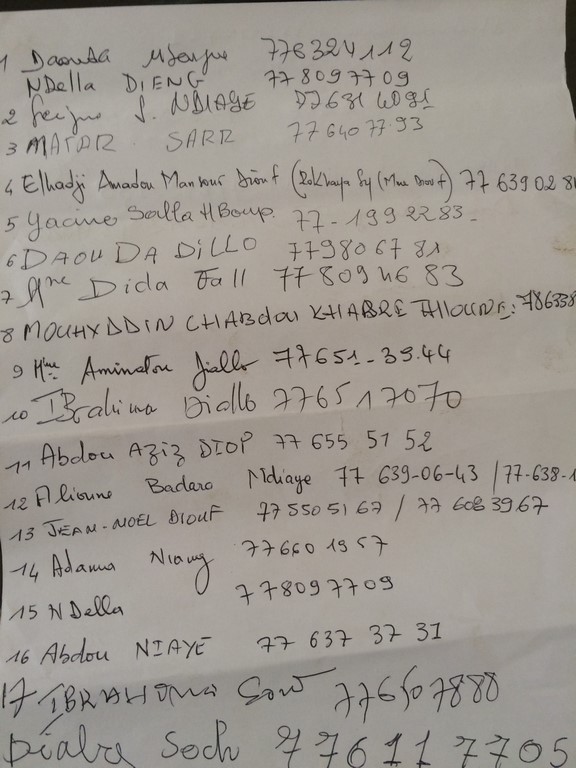 1 Daouda 776324112
NDella DIENG 77 809 77 09
2 Serigne S. NDIAYE
3 MATAR SARR 77 640 77 93
4 Elhadji Amadou Mansour Diouf (Rokhaya Sy (Mme Diouf) 77 639 02
5 Yacine 77-199 22 83-
6 DAOUDA DiLLO 77980 67 81
7 Mme Dida Fall 77 809 46 83
8 MOUHYDDIN CHABdou KHABRE THIOUNE: 786338
9 Mme Aminatou Diallo 77651-39.44
10 IBrahima Diallo 776517070
11 Abdou AZiZ DIOP 77 655 51 52
12 Alioune Badara Ndiaye 77 639-06-43 / 77-638-1
13 JEAN-NOEL DIOUF 77 550 51 67 / 77 608 39 67
14 Adama Niang 77660 1957
15 NDella 778097709
16 Abdou NIAYE 77 637 37 31
17 IBRAHIMA Sow 776507888
Dialra Soch 776117705